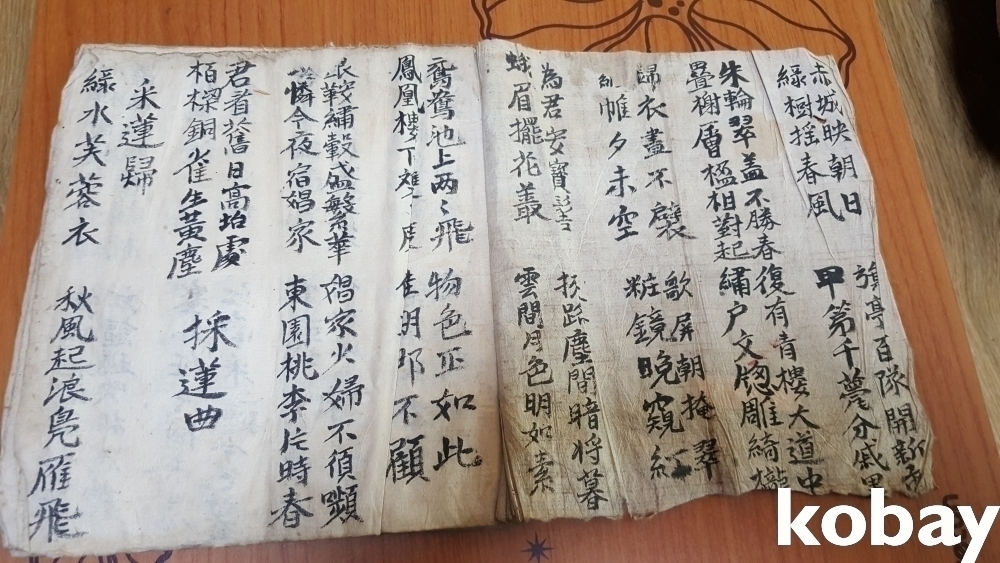 赤城映朝日 亭百隊開新
綠樹搖春風 甲第千甍分戚里
朱輪翠盖不勝春 復有青樓大道中
疊榭層楹相對起 繡戶文窓雕綺櫳
歸衣盡不襞 歌屏朝掩翠
帷夕未空 粧鏡晩窺紅
為君安寶 路塵間暗将暮
蛾眉擺花叢 雲間月色明如素
鴛鴦池上两〻飛 物色正如此
鳳凰樓下雙〻度 佳期那不顧
銀鞍繡轂盛繁華 娼家少婦不須嚬
憐今夜宿娼家 東園桃李片時春
君看舊日高坮處
柏樑銅雀生黃塵 採蓮曲
采蓮歸
綠水芙蓉衣 秋風起浪鳧雁飛
kobay